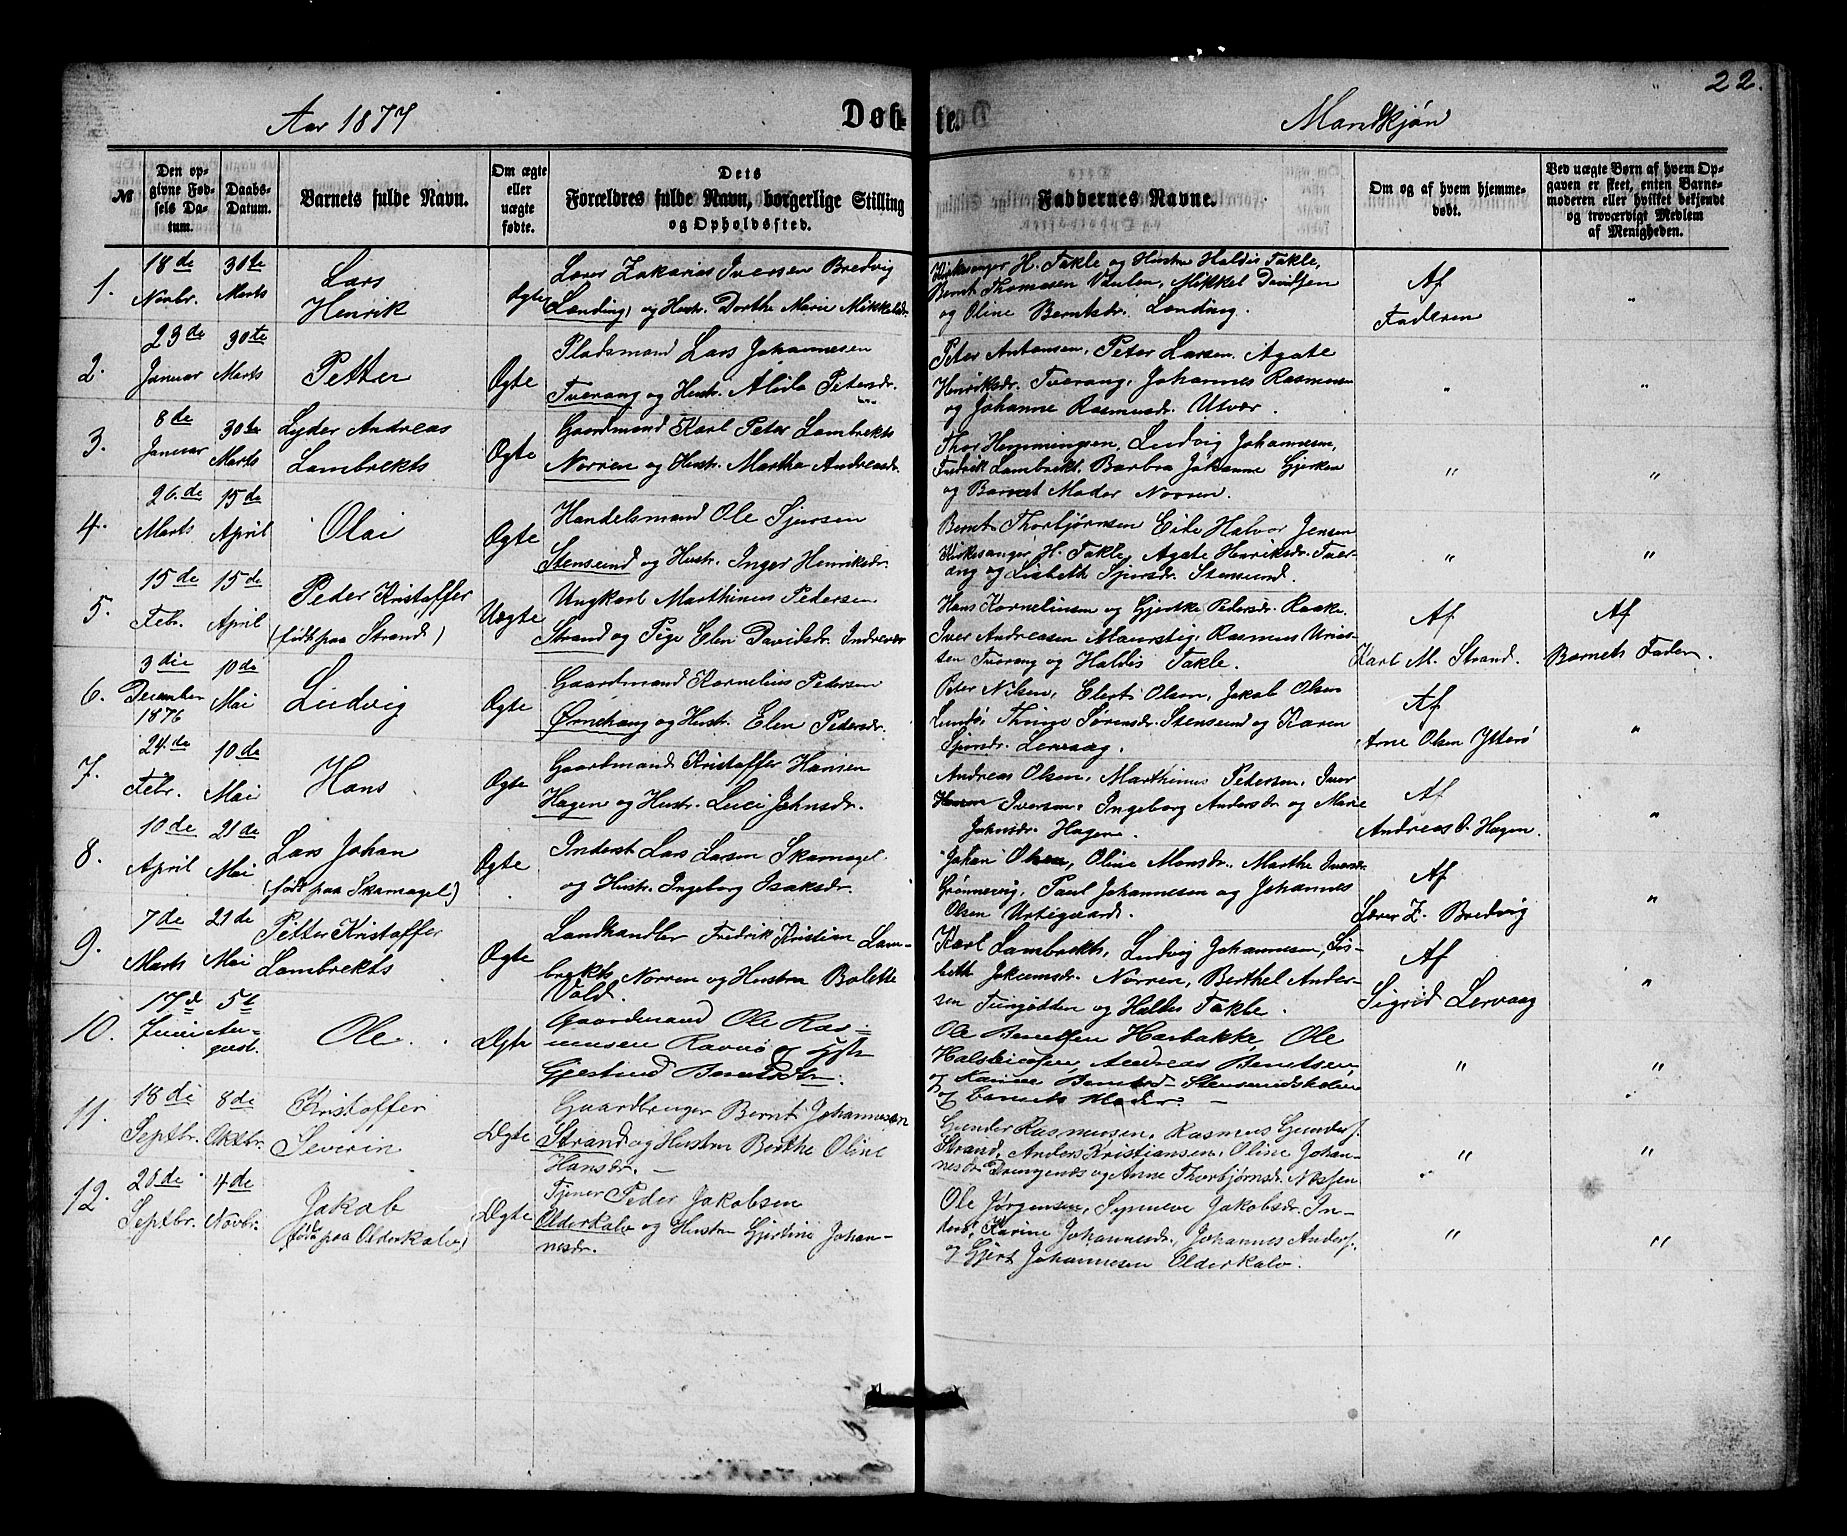 22.
Aar 1877
Døbte.
Mandkjøn
№
Den opgivne Fødsels Datum.
Daabs-Datum.
Barnets fulde Navn.
Om ægte eller uægte fødte.
Dets Forældres fulde Navn, borgerlige Stilling og Opholdssted.
Faddernes Navne.
Om og af hvem hjemmedøbt.
Ved uægte Børn af hvem Opgaven er skeet, enten Barnemoderen eller hvilket bekjendt og troværdigt Medlem af Menigheden.
1.
18de Novbr.
30te Marts
Lars
Henrik
Ægte
Lærer Zakarias Iversen Bredvig
Lending) og Hustr. Dorthe Marie Mikkelsdr.
Kirkesanger H. Takle og Hustru Haldis Takle,
Bernt Thomassen Vaulen, Mikkel Davidsen
og Oline Berntsdr. Lending.
Af
Faderen
"
2.
23de Januar
30te Marts
Petter
Ægte
Pladsmand Lars Johannesen
Tverang og Hustr. Alida Petersdr.
Peter Antonsen, Peter Larsen, Agate
Henriksdr. Tverang, Johannes Rasmussen
og Johanne Rasmusdr. Utvær.
"
"
3.
8de Januar
30te Marts
Lyder Andreas
Lambrekts
Ægte
Gaardmand Karl Peter Lambrekts
Norren og Hustr. Martha Andreasdr.
Thor Hemmingsen, Ludvig Johannesen,
Fredrik Lambrekt, Barbra Johanne Gjerken
og Barnet Moder Norren.
"
"
4.
26.de Marts
15de April
Olai
Ægte
Handelsmand Ole Sjursen
Stensund og Hustr. Inger Henriksdr.
Bernt Thorbjørnsen Eide Halvor Jensen
Kirkesanger H. Takle, Agate Henriksdr. Tver-
ang og Lisbeth Sjursdr. Stensund.
"
"
5.
15de Febr.
15de April
Peder Kristoffer
(født paa Strand)
Uægte
Ungkarl Marthinus Pedersen
Strand og Pige Elen Davidsdr. Indrevær
Hans Kornelius­sen og Gjertke Pedersdr. Raake.
Iver Andreasen Maurstig, Rasmus
sen Tverang og Haldis Takle.
Af
Karl M. Strand.
Af
Barnets Fader.
6.
3die December 1876
10de Mai
Ludvig
Ægte
Gaardmand Kornelius Pedersen
Ørnehaug og Hustr. Elen Pedersdr.
Peter Nilsen, Elert Olsen, Jakob Olsen
Lundø, Thrine Sørensdr. Stensund og Karen
Sjursdr. Lervaag.
Af
Arne Olsen Ytterø
"
7.
24.de Febr.
10de Mai
Hans
Ægte
Gaardmand Kristoffer Hansen
Hagen og Hustr. Luci Johnsdr.
Andreas Olsen, Marthinus Petersen, Iver
Iversen, Ingeborg Andersdr og Marie
Johnsdr. Hagen.
Af
Andreas O. Hagen.
"
8.
10de April
21de Mai
Lars Johan
(født paa Skarnagel)
Ægte
Inderst Lars Larsen Skarnagel.
og Hustr. Ingeborg Isaksdr.
Johan Olsen, Oline Monsdr. Marthe Iversdr.
Grønnevig, Paul Johannesen og Johannes
Olsen Urtegaard.
Af
Lærer Z. Bredvig
"
9.
7de Marts
21de Mai
Petter Kristoffer
Lambrekts
Ægte
Landhandler Fredrik Kristian Lam-
brekts, Norren og Hustru Bolette
Vold.
Karl Lambrekts, Ludvig Johannesen, Lis-
beth Jokumsdr. Norren, Berthel Ander-
sen Tungodden og Haldis Takle.
Af
Sigrid Lervaag
"
10.
17d Juni
5t August.
Ole
Ægte
Gaardmand Ole Ras=
mussen Ravnø og Hstr
Gjertrud Berntsdtr.
Ole Berntsen Harbakke, Ole
Halsteinsen, Andreas Berntsen,
og Karine Berntsd. Stensundholm
og Barnets Moder. —
"
"
11.
18de Septbr.
8de Oktbr.
Kristoffer
Severin
Ægte
Gaardbruger Bernt Johannesen
Strand og Hustru Berthe Oline
Hansdr. —
Gunder Rasmussen, Rasmus Gunders.
Strand, Anders Kristiansen, Oline Johan-
nesdr. Drengenes og Anne Thorbjørnsdr. Nessen
"
"
12.
26de Septbr.
4de Novbr.
Jakob
(født paa Olderkalv)
Ægte
Tjener Peder Jakobsen
Olderkalv og Hustru Gjertine Johan-
nesdr.
Ole Jørgensen, Synneve Jakobsdr. In-
derø, Karine Johannesdr., Johannes Anders.
og Gjert Johannesen Olderkalv.
"
"